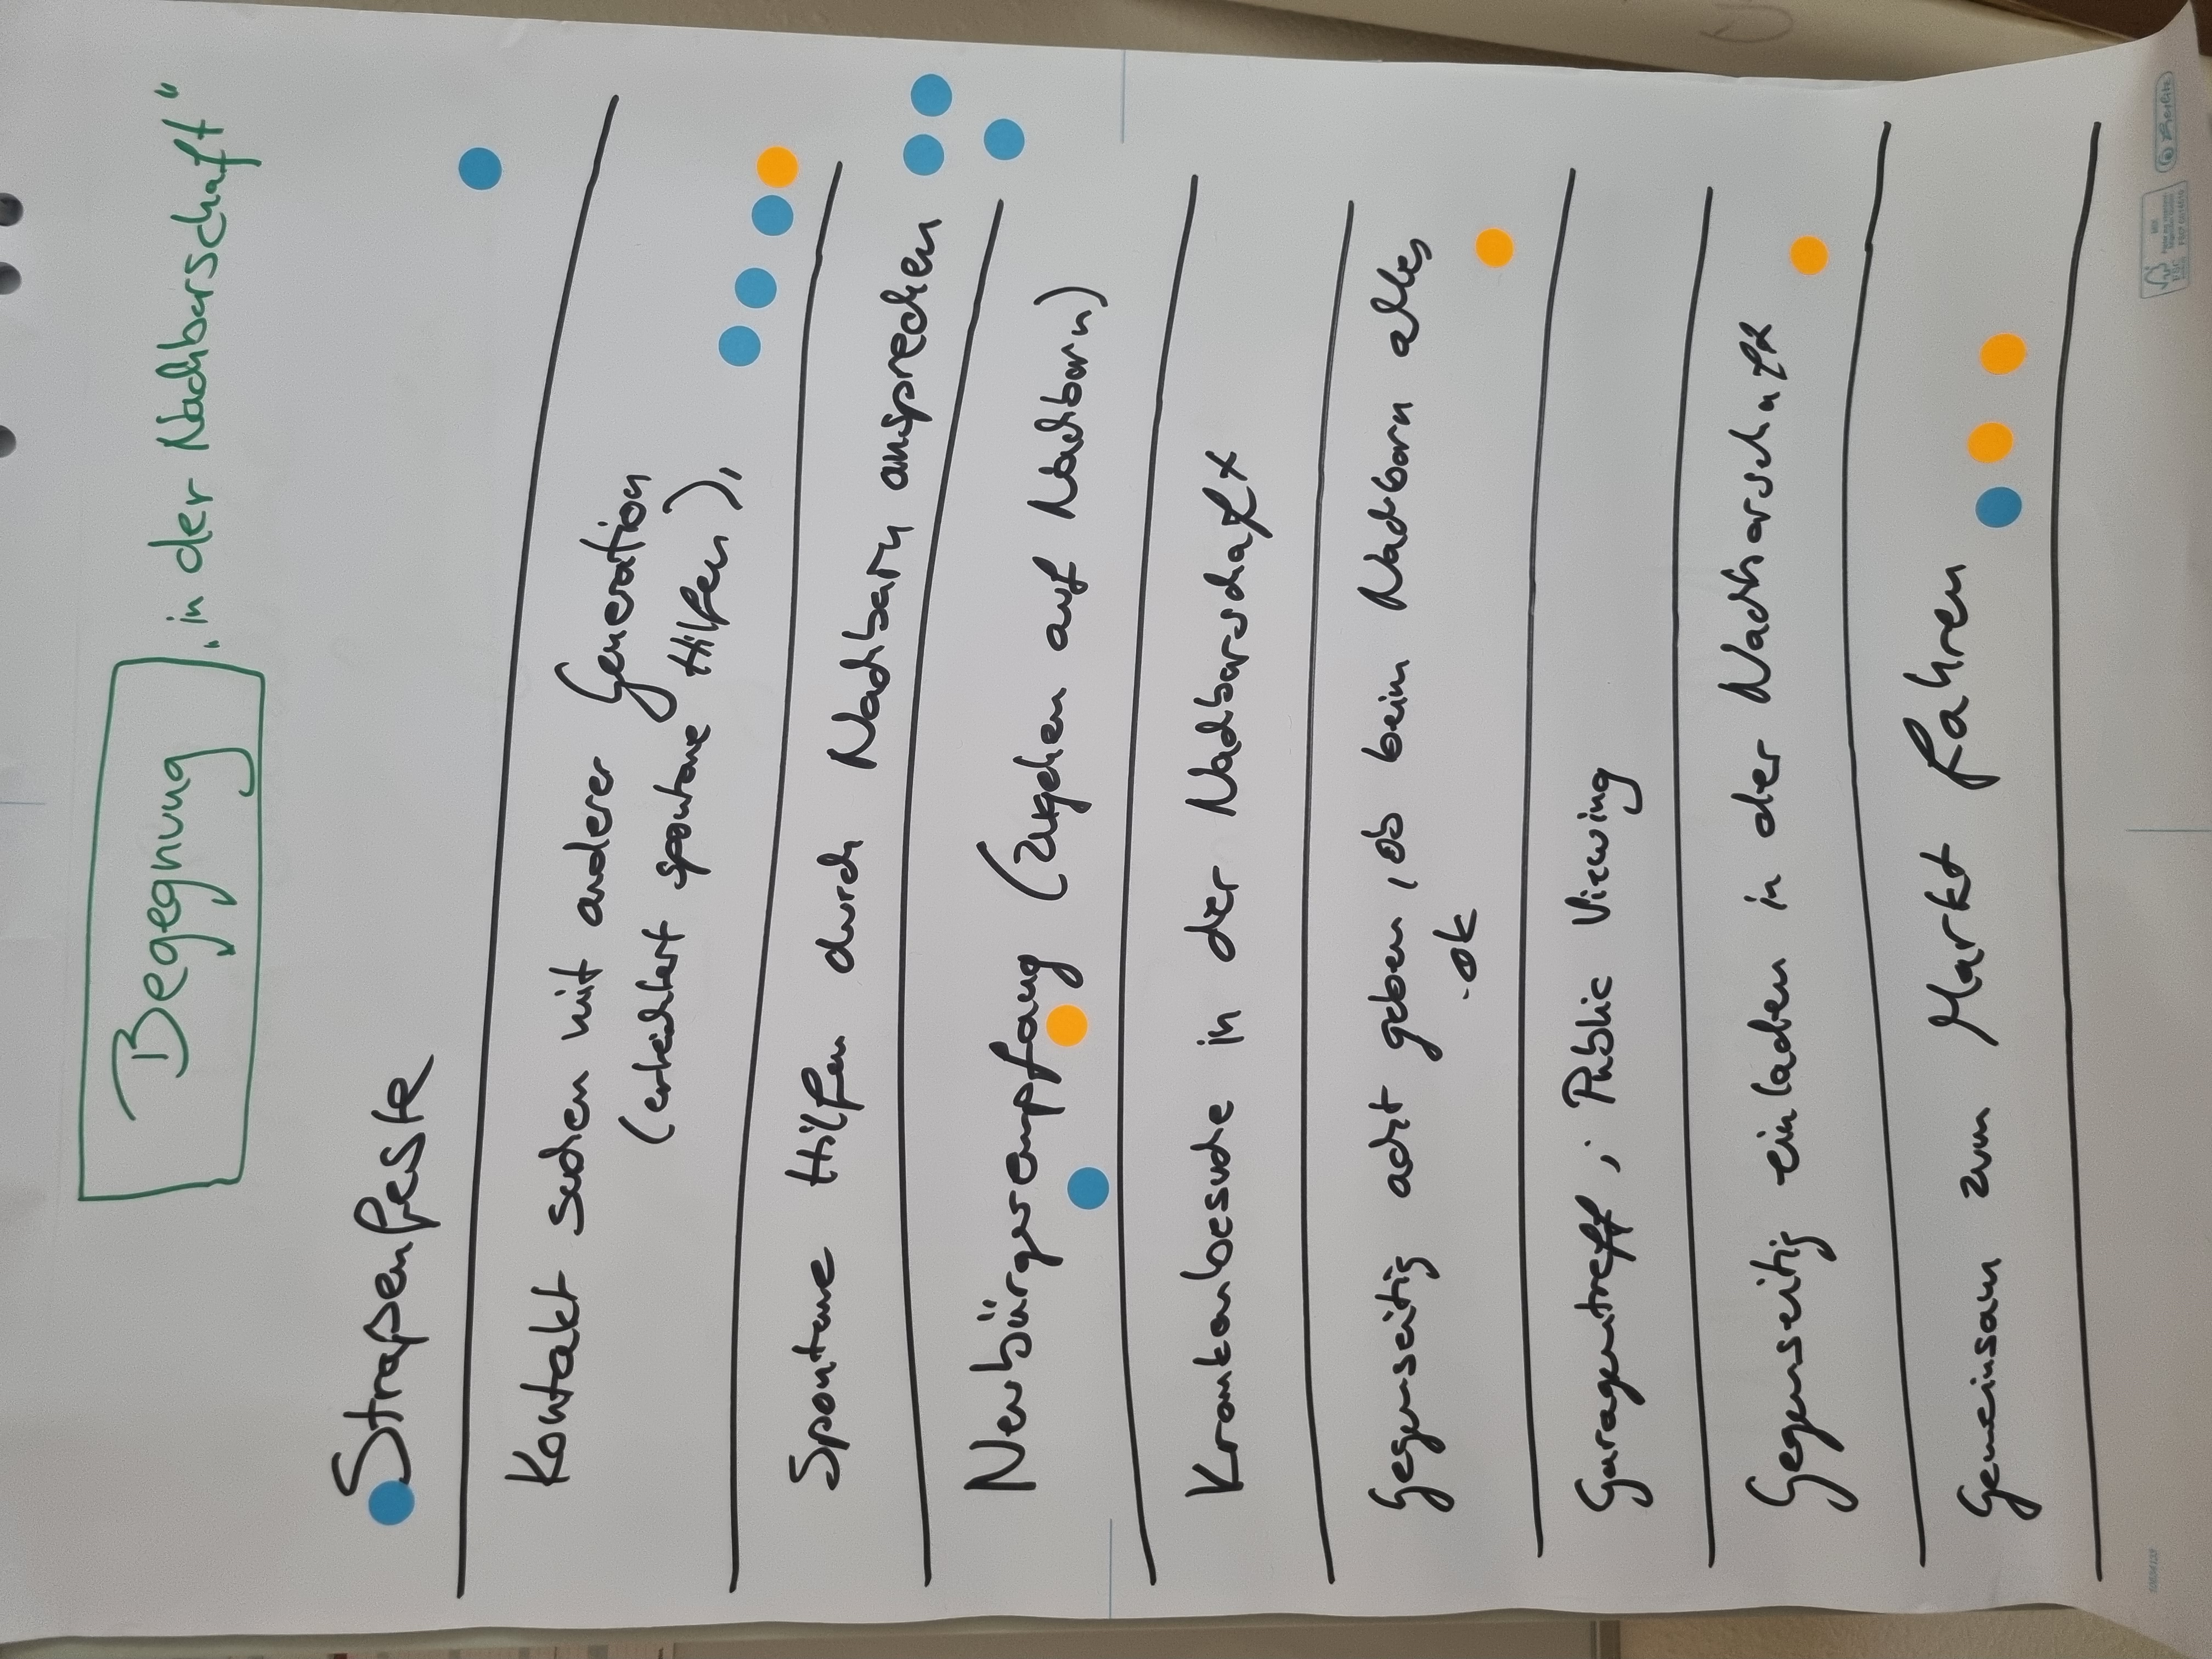 Begegnung „in der Nachbarschaft"
Straßenfeste
Kontakt suchen mit anderer Generation
(erleichtert spontane Hilfen),
Spontane Hilfen durch Nachbarn ansprechen
Neubürgerempfang (Zugehen auf Nachbarn)
Krankenbesuche in der Nachbarschaft
Gegenseitig acht geben, ob beim Nachbarn alles
ok
Garagentreff, Public Viewing
Gegenseitig einladen in der Nachbarschaft
Gemeinsam zum Markt fahren